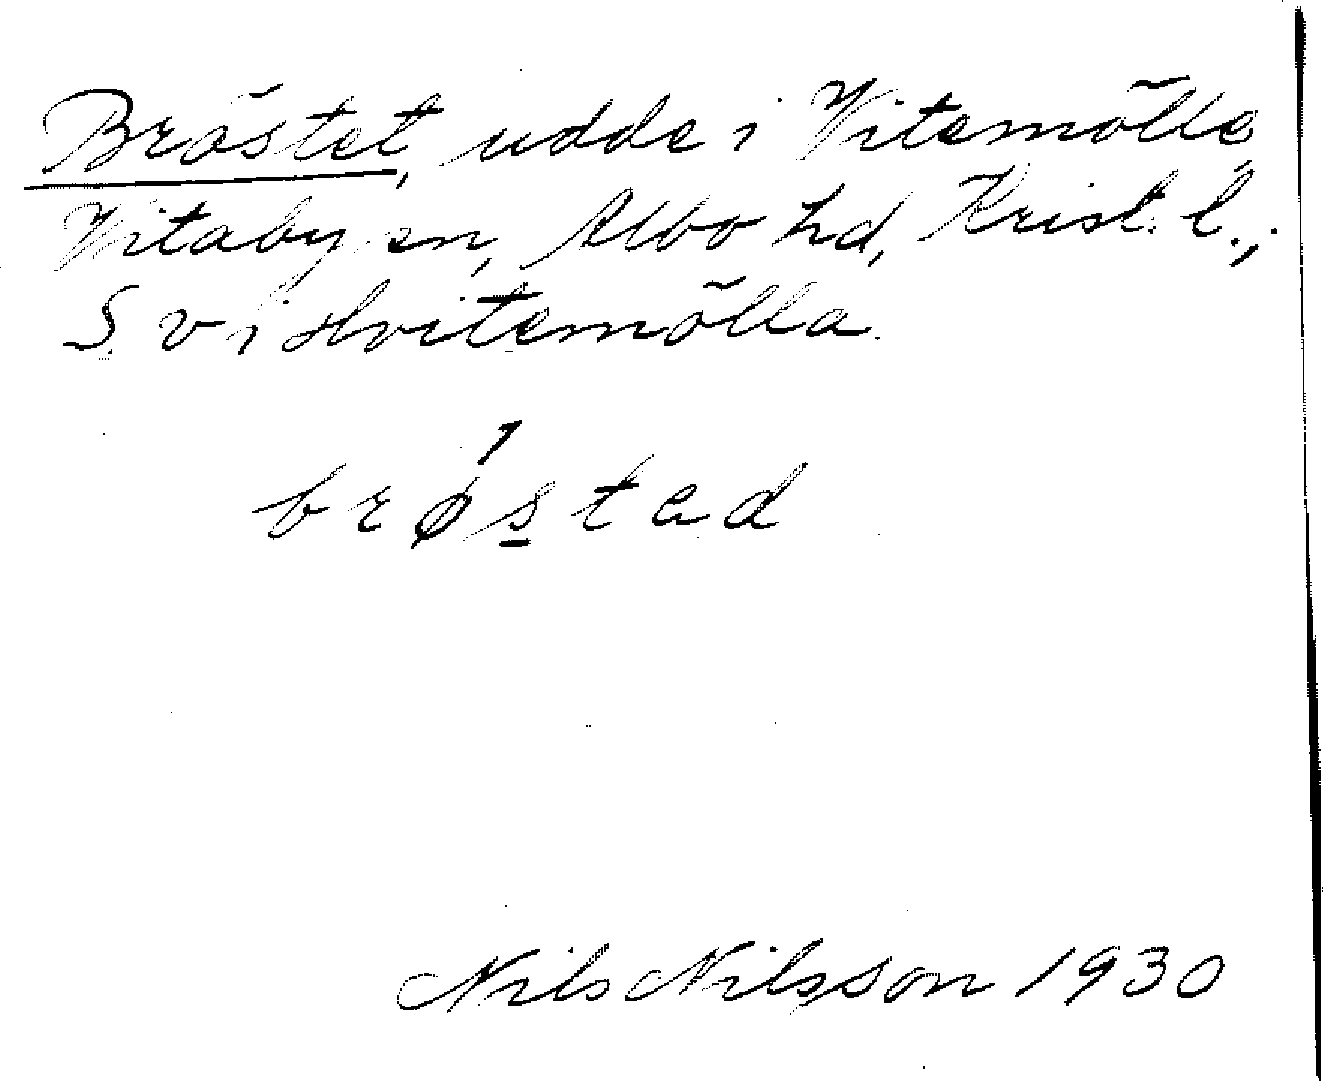 Bröstet, udde i Vitemölle,
Vitaby sn, Albo hd, Krist. l.;
S v i Hvitemölla.
brǿstad
Nils Nilsson 1930